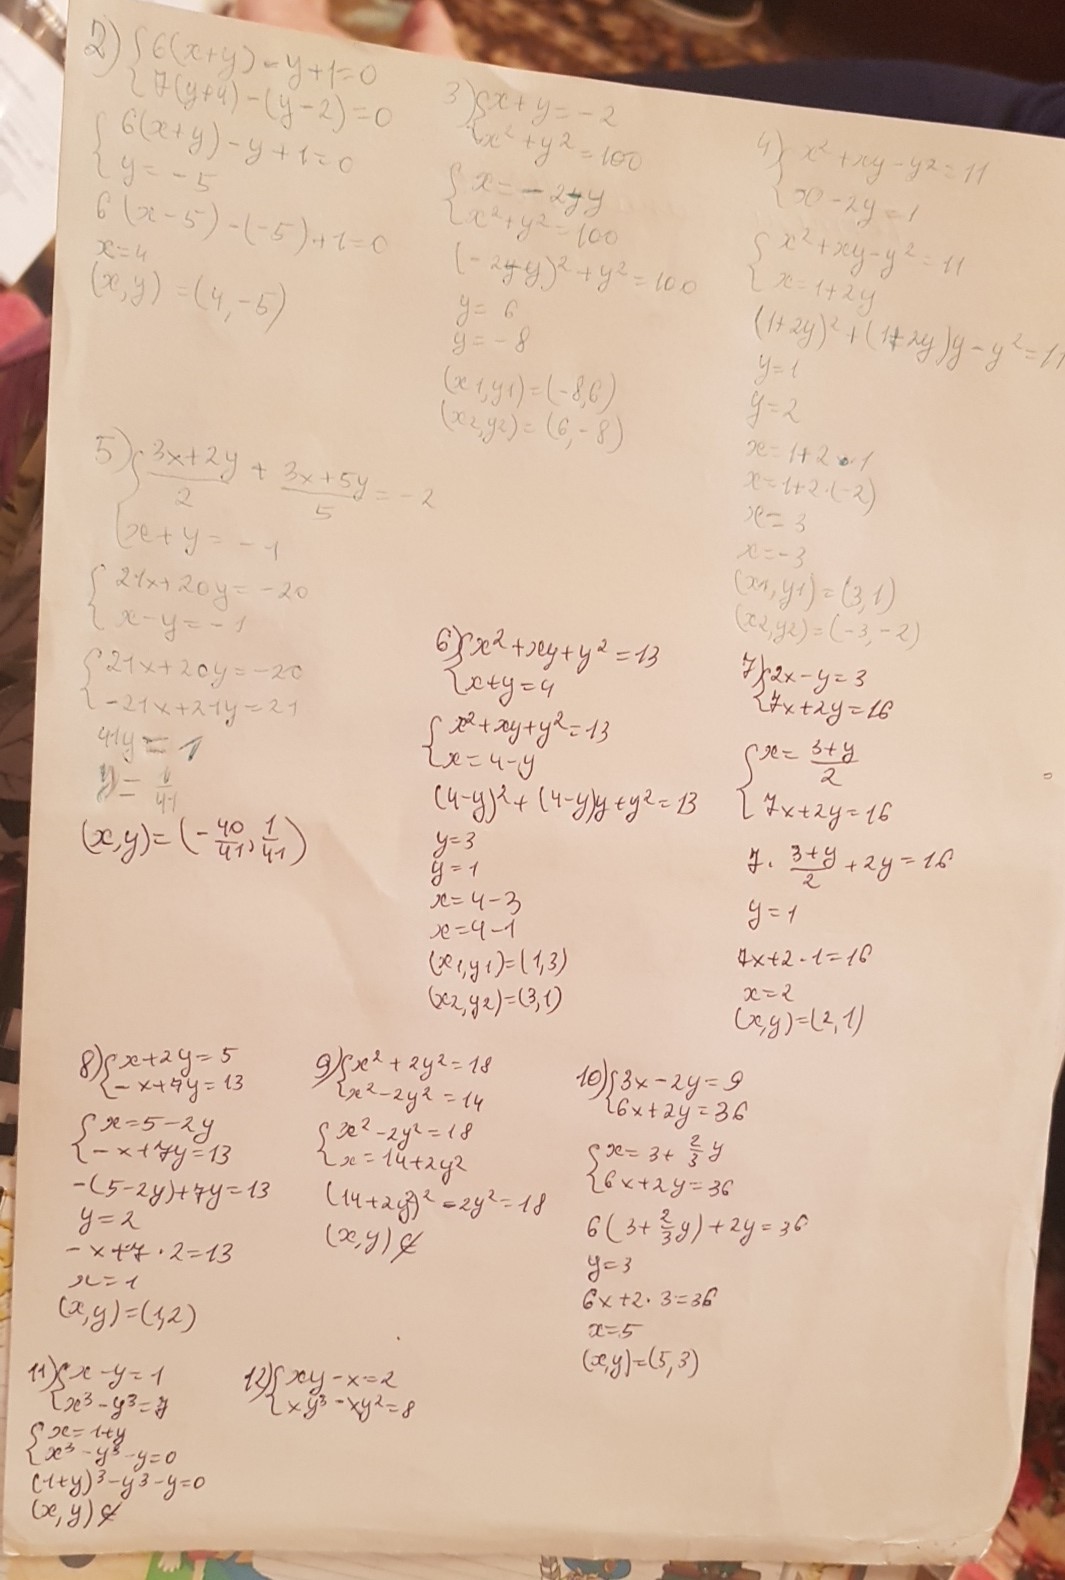 2) {6(x+y)-y+1=0
{7(y+4)-(y-2)=0
{6(x+y)-y+1=0
{y=-5
6(x-5)-(-5)+1=0
x=4
(x,y)=(4,-5)
3) {x+y=-2
{x²+y²=100
{x=-2-y
{x²+y²=100
(-2-y)²+y²=100
y=6
y=-8
(x1,y1)=(-8,6)
(x2,y2)=(6,-8)
4) {x²+xy-y²=11
{x-2y=1
{x²+xy-y²=11
{x=1+2y
(1+2y)²+(1+2y)y-y²=11
y=1
y=2
x=1+2·1
x=1+2·(-2)
x=3
x=-3
(x1,y1)=(3,1)
(x2,y2)=(-3,-2)
5) {(3x+2y)/2 + (3x+5y)/5 = -2
{x+y=-1
{21x+20y=-20
{x-y=-1
{21x+20y=-20
{-21x+21y=21
41y=1
y=1/41
(x,y)=(-40/41, 1/41)
6) {x²+xy+y²=13
{x+y=4
{x²+xy+y²=13
{x=4-y
(4-y)²+(4-y)y+y²=13
y=3
y=1
x=4-3
x=4-1
(x1,y1)=(1,3)
(x2,y2)=(3,1)
7) {2x-y=3
{7x+2y=16
{x=(3+y)/2
{7x+2y=16
7·(3+y)/2+2y=16
y=1
7x+2·1=16
x=2
(x,y)=(2,1)
8) {x+2y=5
{-x+7y=13
{x=5-2y
{-x+7y=13
-(5-2y)+7y=13
y=2
-x+7·2=13
x=1
(x,y)=(1,2)
9) {x²+2y²=18
{x²-2y²=14
{x²-2y²=18
{x=14+2y²
(14+2y²)²-2y²=18
(x,y)∉
10) {3x-2y=9
{6x+2y=36
{x=3+2/3y
{6x+2y=36
6(3+2/3y)+2y=36
y=3
6x+2·3=36
x=5
(x,y)=(5,3)
11) {x-y=1
{x³-y³=7
{x=1+y
{x³-y³-y=0
(1+y)³-y³-y=0
(x,y)∉
12) {xy-x=2
{xy³-xy²=8